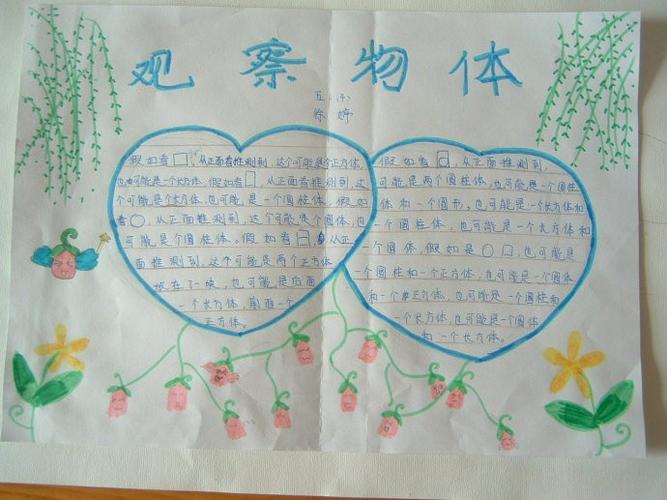 观察物体
五.(4)
徐婷
假如看□，从正面看推测到，这个可能是个正方体，
也有可能是一个长方体，假如看▯，从正面看推测到，这
个可能是个长方体，也可能，是一个圆柱体，假如
看○，从正面推测到，这个可能是个圆体，也
可能是个圆柱体。假如看日，从正
面推测到，这个可能是两个正方体
放在了一块，也可能是后面
一个长方体，前面一个
正方体。
假如看，从正面推测到，
可能是两个圆柱体，也可能是一个圆柱
体和一个圆形。也可能是一个长方体和
一个圆柱体，也可能是一个长方体和
一个圆体，假如是○□，也可能是
一个圆柱和一个正方体，也可能是一个圆体
和一个正方体，也可能是一个圆柱和
一个长方体，也可能是一个圆体
和一个长方体。